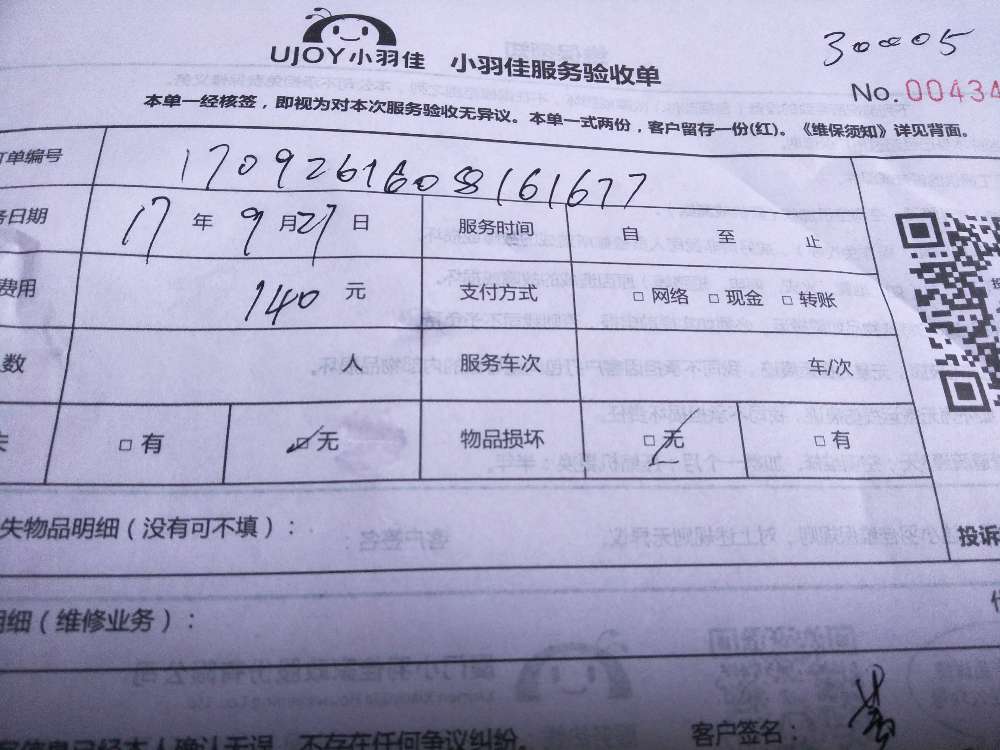 30005
UJOY小羽佳 小羽佳服务验收单
No 00434
本单一经核签，即视为对本次服务验收无异议。本单一式两份，客户留存一份(红)。《维保须知》详见背面。
订单编号 1709261608161677
务日期 17 年 9 月 27 日 服务时间 自 至 止
费用 140 元 支付方式 □ 网络 □ 现金 □ 转账
数 人 服务车次 车/次
失 □ 有 □ 无 物品损坏 □ 无 □ 有
失物品明细（没有可不填）：
投诉
明细（维修业务）：
客户签名：
信息已经本人确认无误，不存在任何争议纠纷。